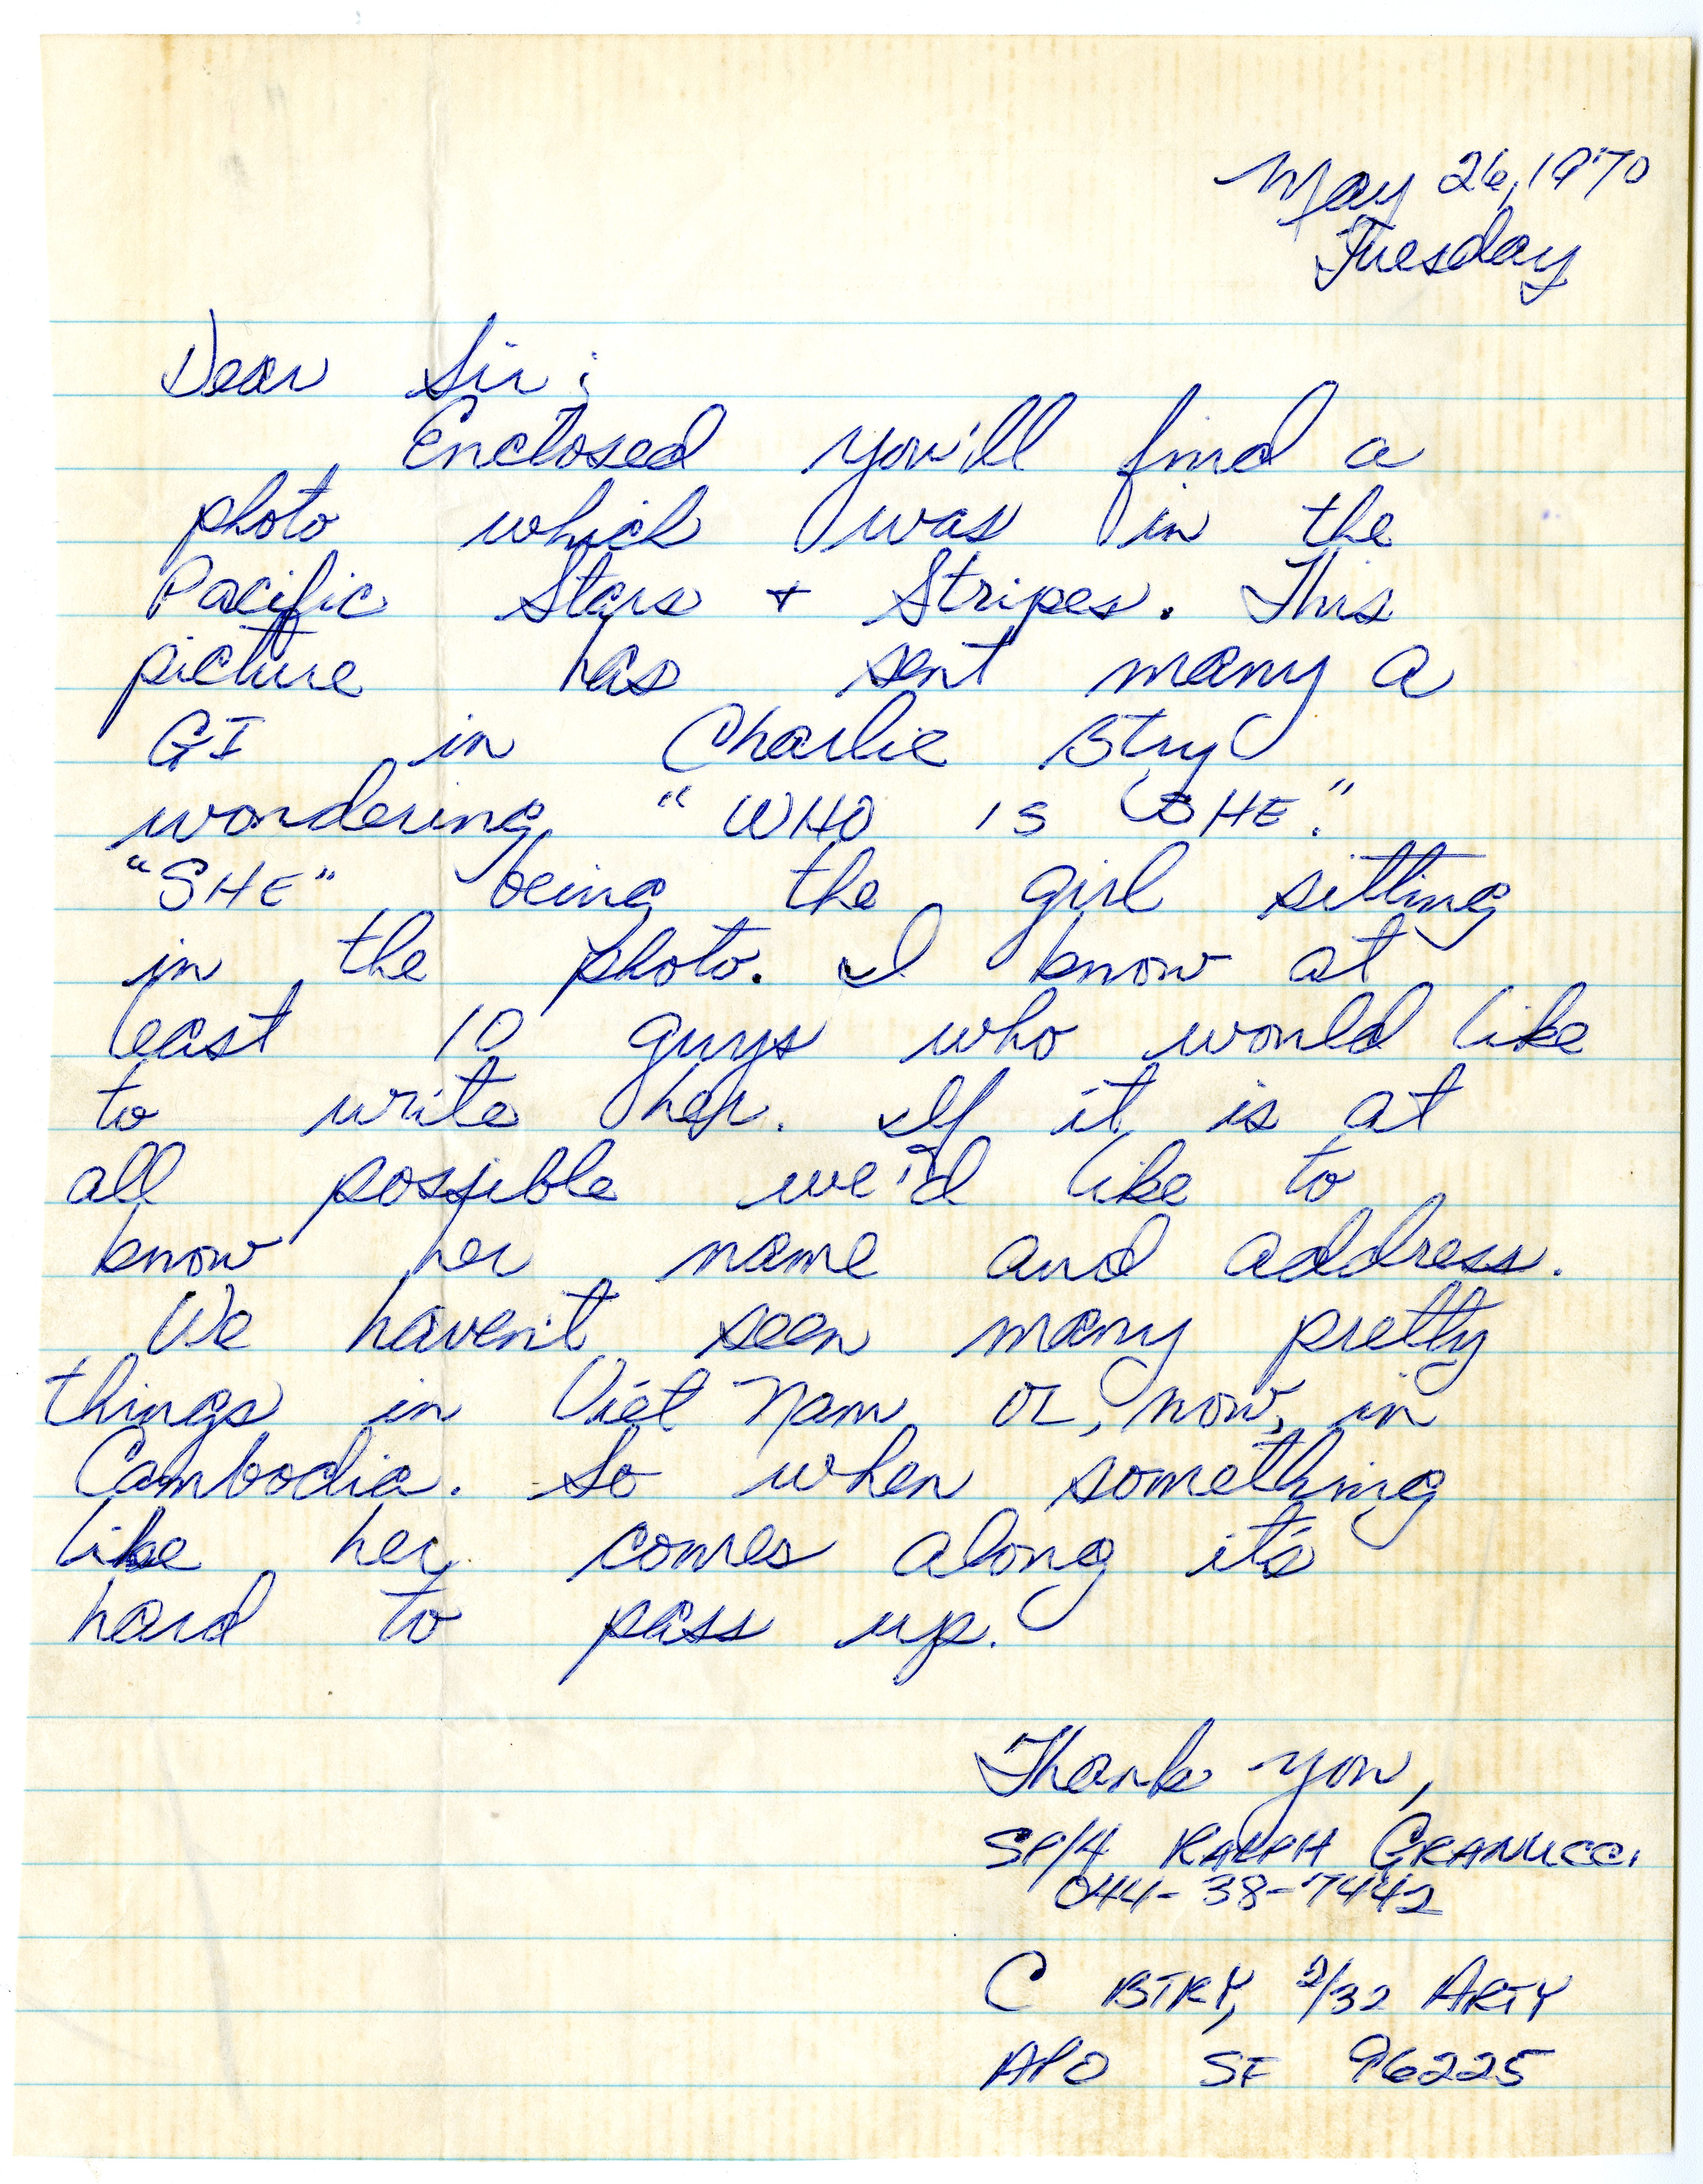 May 26, 1970
Tuesday
Dear Sir;
Enclosed you'll find a
photo which was in the
Pacific Stars + Stripes. This
picture has sent many a
GI in Charlie Btry
wondering "WHO IS SHE."
"SHE" being the girl sitting
in the photo. I know at
least 10 guys who would like
to write her. If it is at
all possible we'd like to
know her name and address.
We haven't seen many pretty
things in Viet Nam or, now, in
Cambodia. So when something
like her comes along it's
hard to pass up.
Thank you,
SP/4 RALPH GRANUCCI
044-38-7442
C BTRY, 2/32 ARTY
APO SF 96225